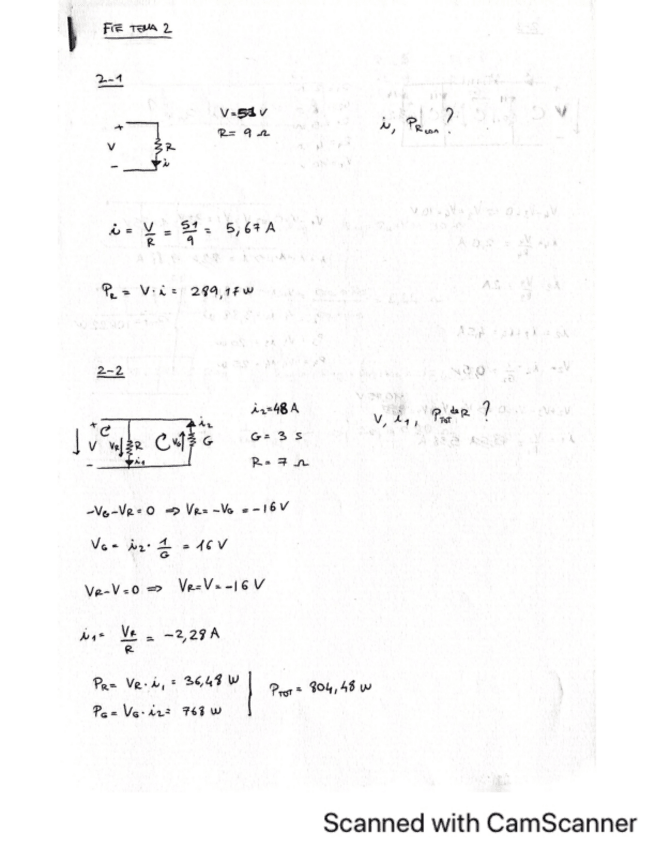 FIE TEMA 2
2-1
+ V - R i
V=51 V
R= 9 Ω
i, PR ?
i = V/R = 51/9 = 5,67 A
PR = V·i = 289,17 W
2-2
+ V - VR R i1 VG G i2
i2=48 A
G= 3 S
R= 7 Ω
V, i1, PTOT de R ?
-VG-VR=0 ⇒ VR=-VG =-16 V
VG= i2· 1/G = 16 V
VR-V=0 ⇒ VR=V=-16 V
i1= VR/R = -2,28 A
PR= VR·i1 = 36,48 W
PG= VG·i2= 768 W
PTOT= 804,48 W
Scanned with CamScanner